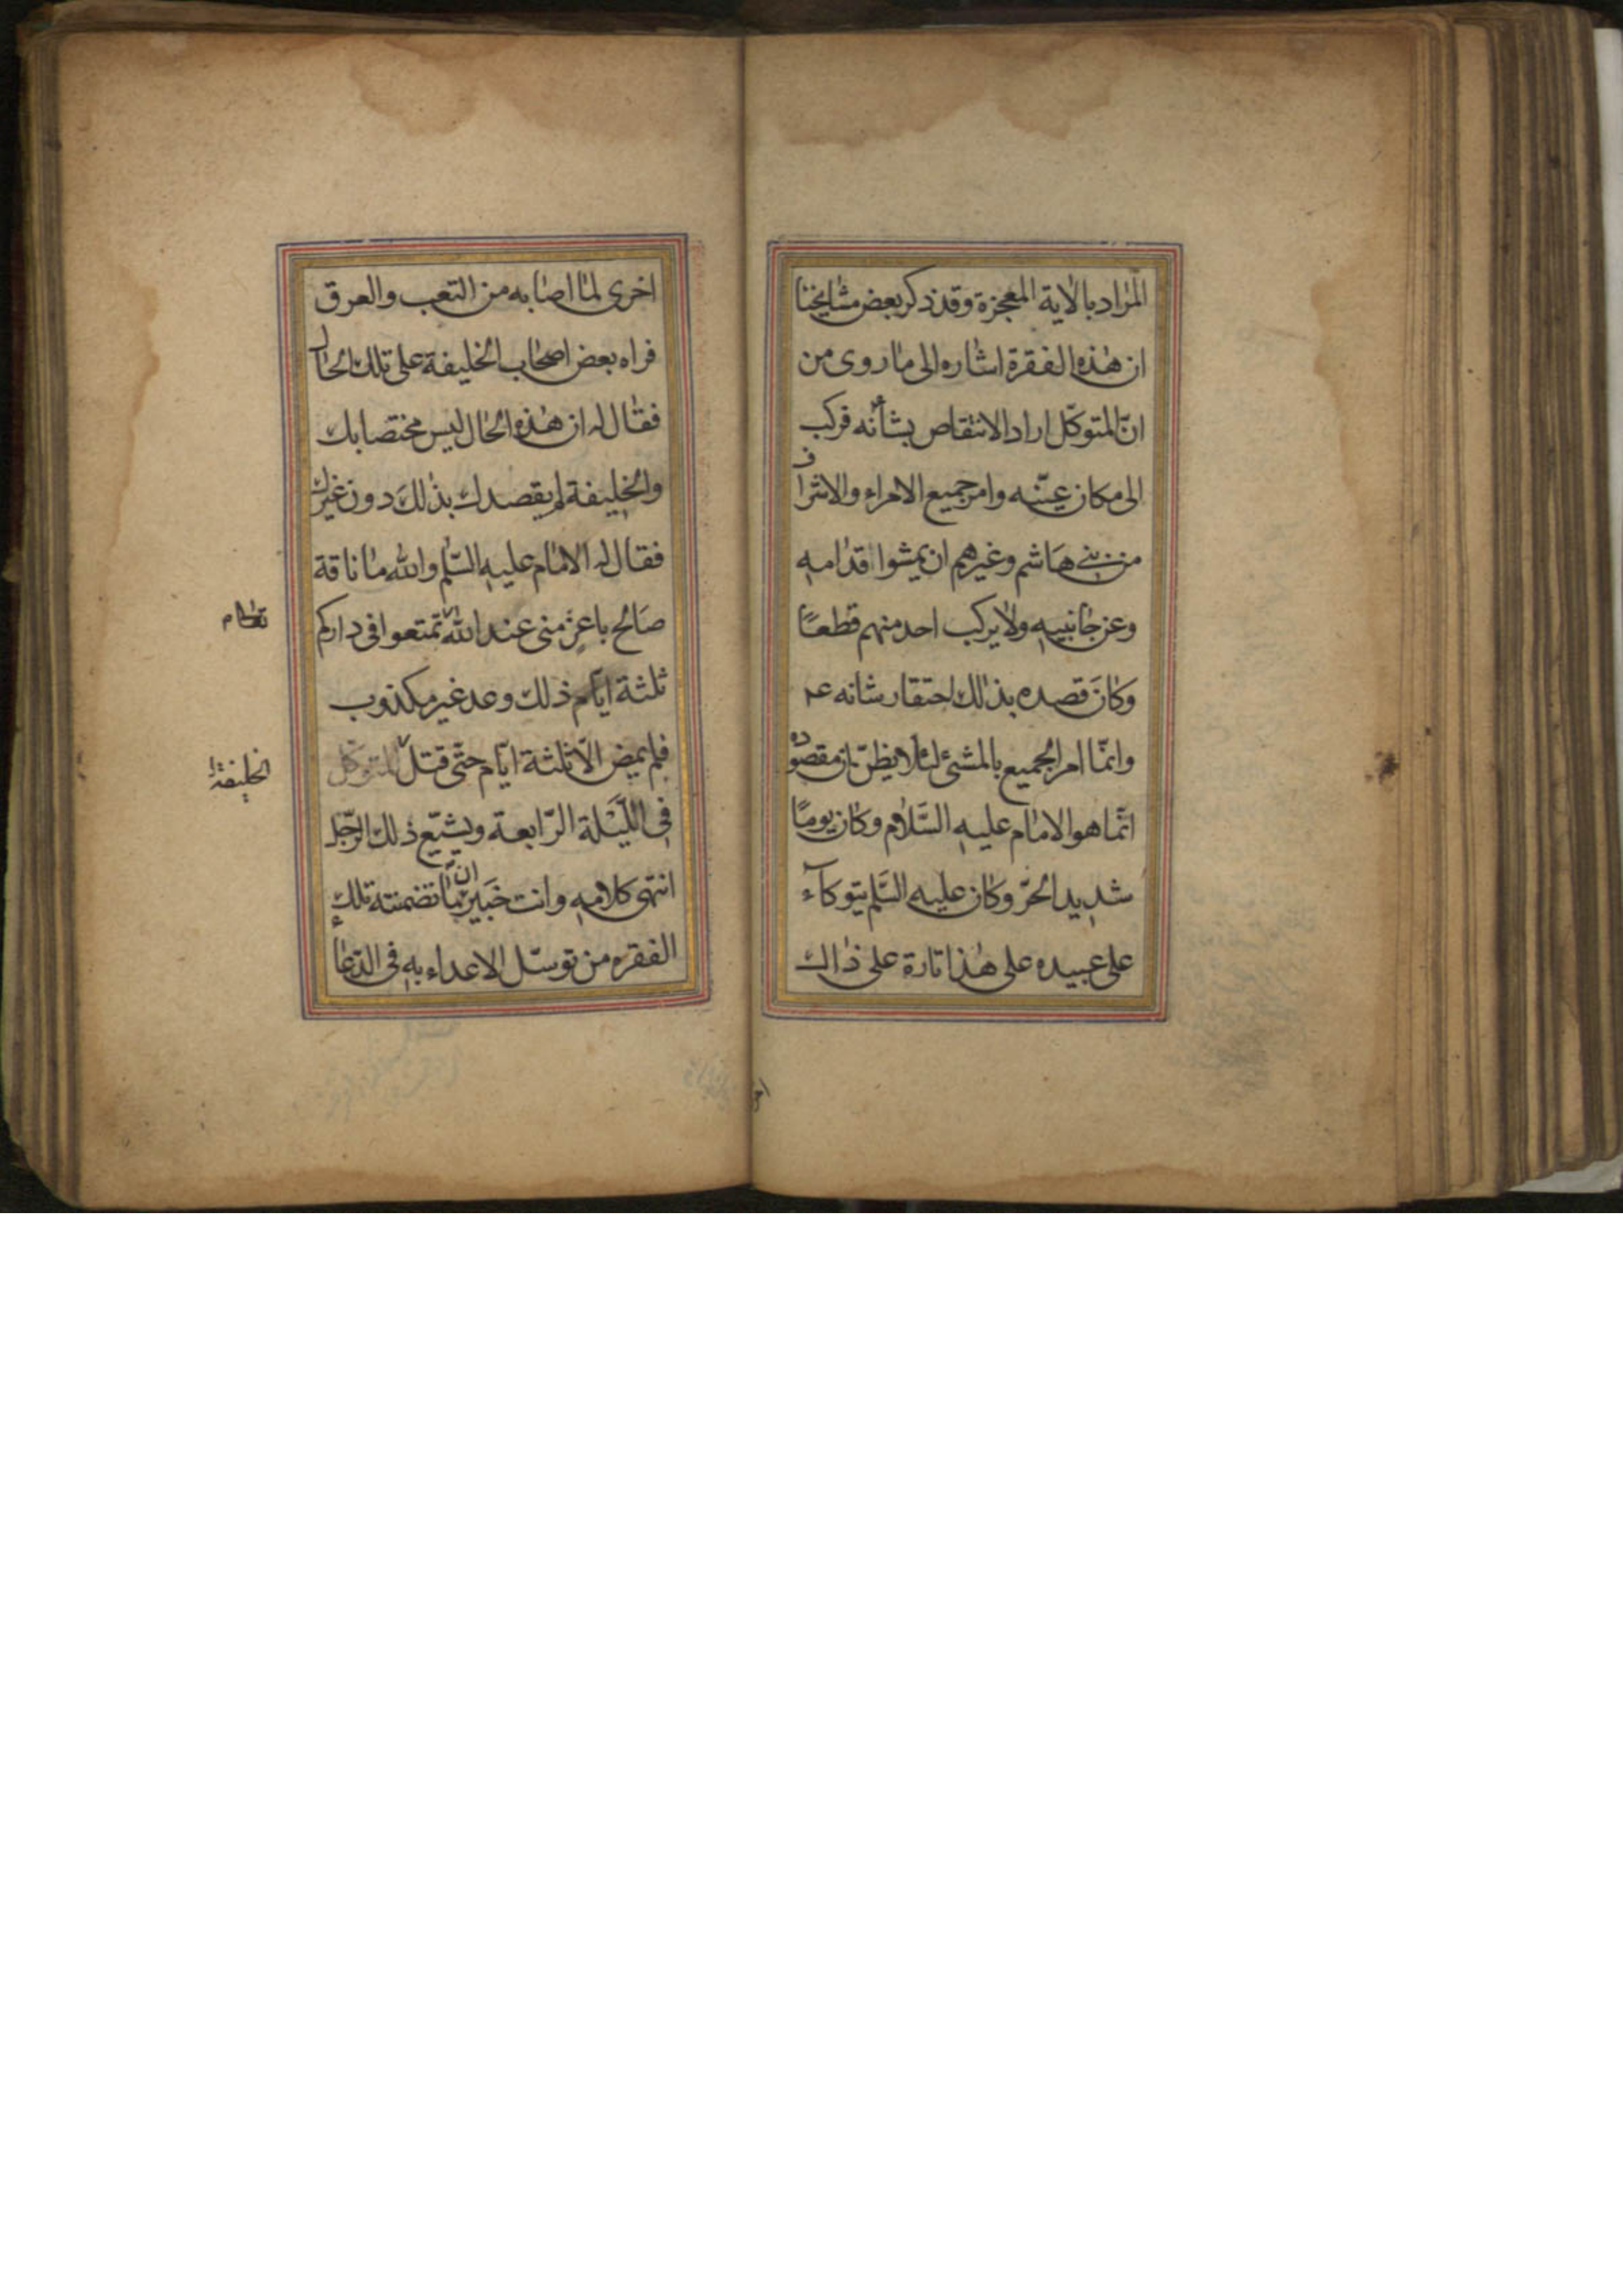 المراد بالاية المعجزة وقد ذكر بعض مشايخنا
ان هذه الفقرة اشاره الى ما روى من
انّ المتوكّل اراد الانتقاص بشأنه فركب
الى مكان عيّنه وامر جميع الامراء والاشراف
من بنى هاشم وغيرهم ان يمشوا قدامه
وعن جانبيه ولا يركب احد منهم قطعًا
وكانَ قصده بذلك احتقار شانه عم
وانّما امر الجميع بالمشئ لئلا يظنّ بان مقصوده
انّما هو الامام عليه السَّلام وكان يومًا
شديد الحرّ وكان عليه السَّلم يتوكآء
على عبيده على هذا تارة على ذاك
اخرى
اخرى لما اصابه من التعب والعرق
فراه بعض اصحاب الخليفة على تلك الحال
فقال له ان هذه الحال ليس مختصا بك
والخليفة لم يقصدك بذلكَ دون غيرك
فقال له الامام عليه السّلم والله ما ناقة
صَالح باعز منى عند الله تمتعوا فى داركم
ثلثة ايّام ذلك وعد غير مكذوب
فلم يمض الّا ثلثة ايّام حتّى قتل المتوكل
الخليفة
فى اللَّيْلة الرّابعة ويشيّع ذلك الرّجل
انتهى كلامه وانت خَبير ان ما تضمنته تلك
الفقره من توسّل الاعداء به فى الدّعاء